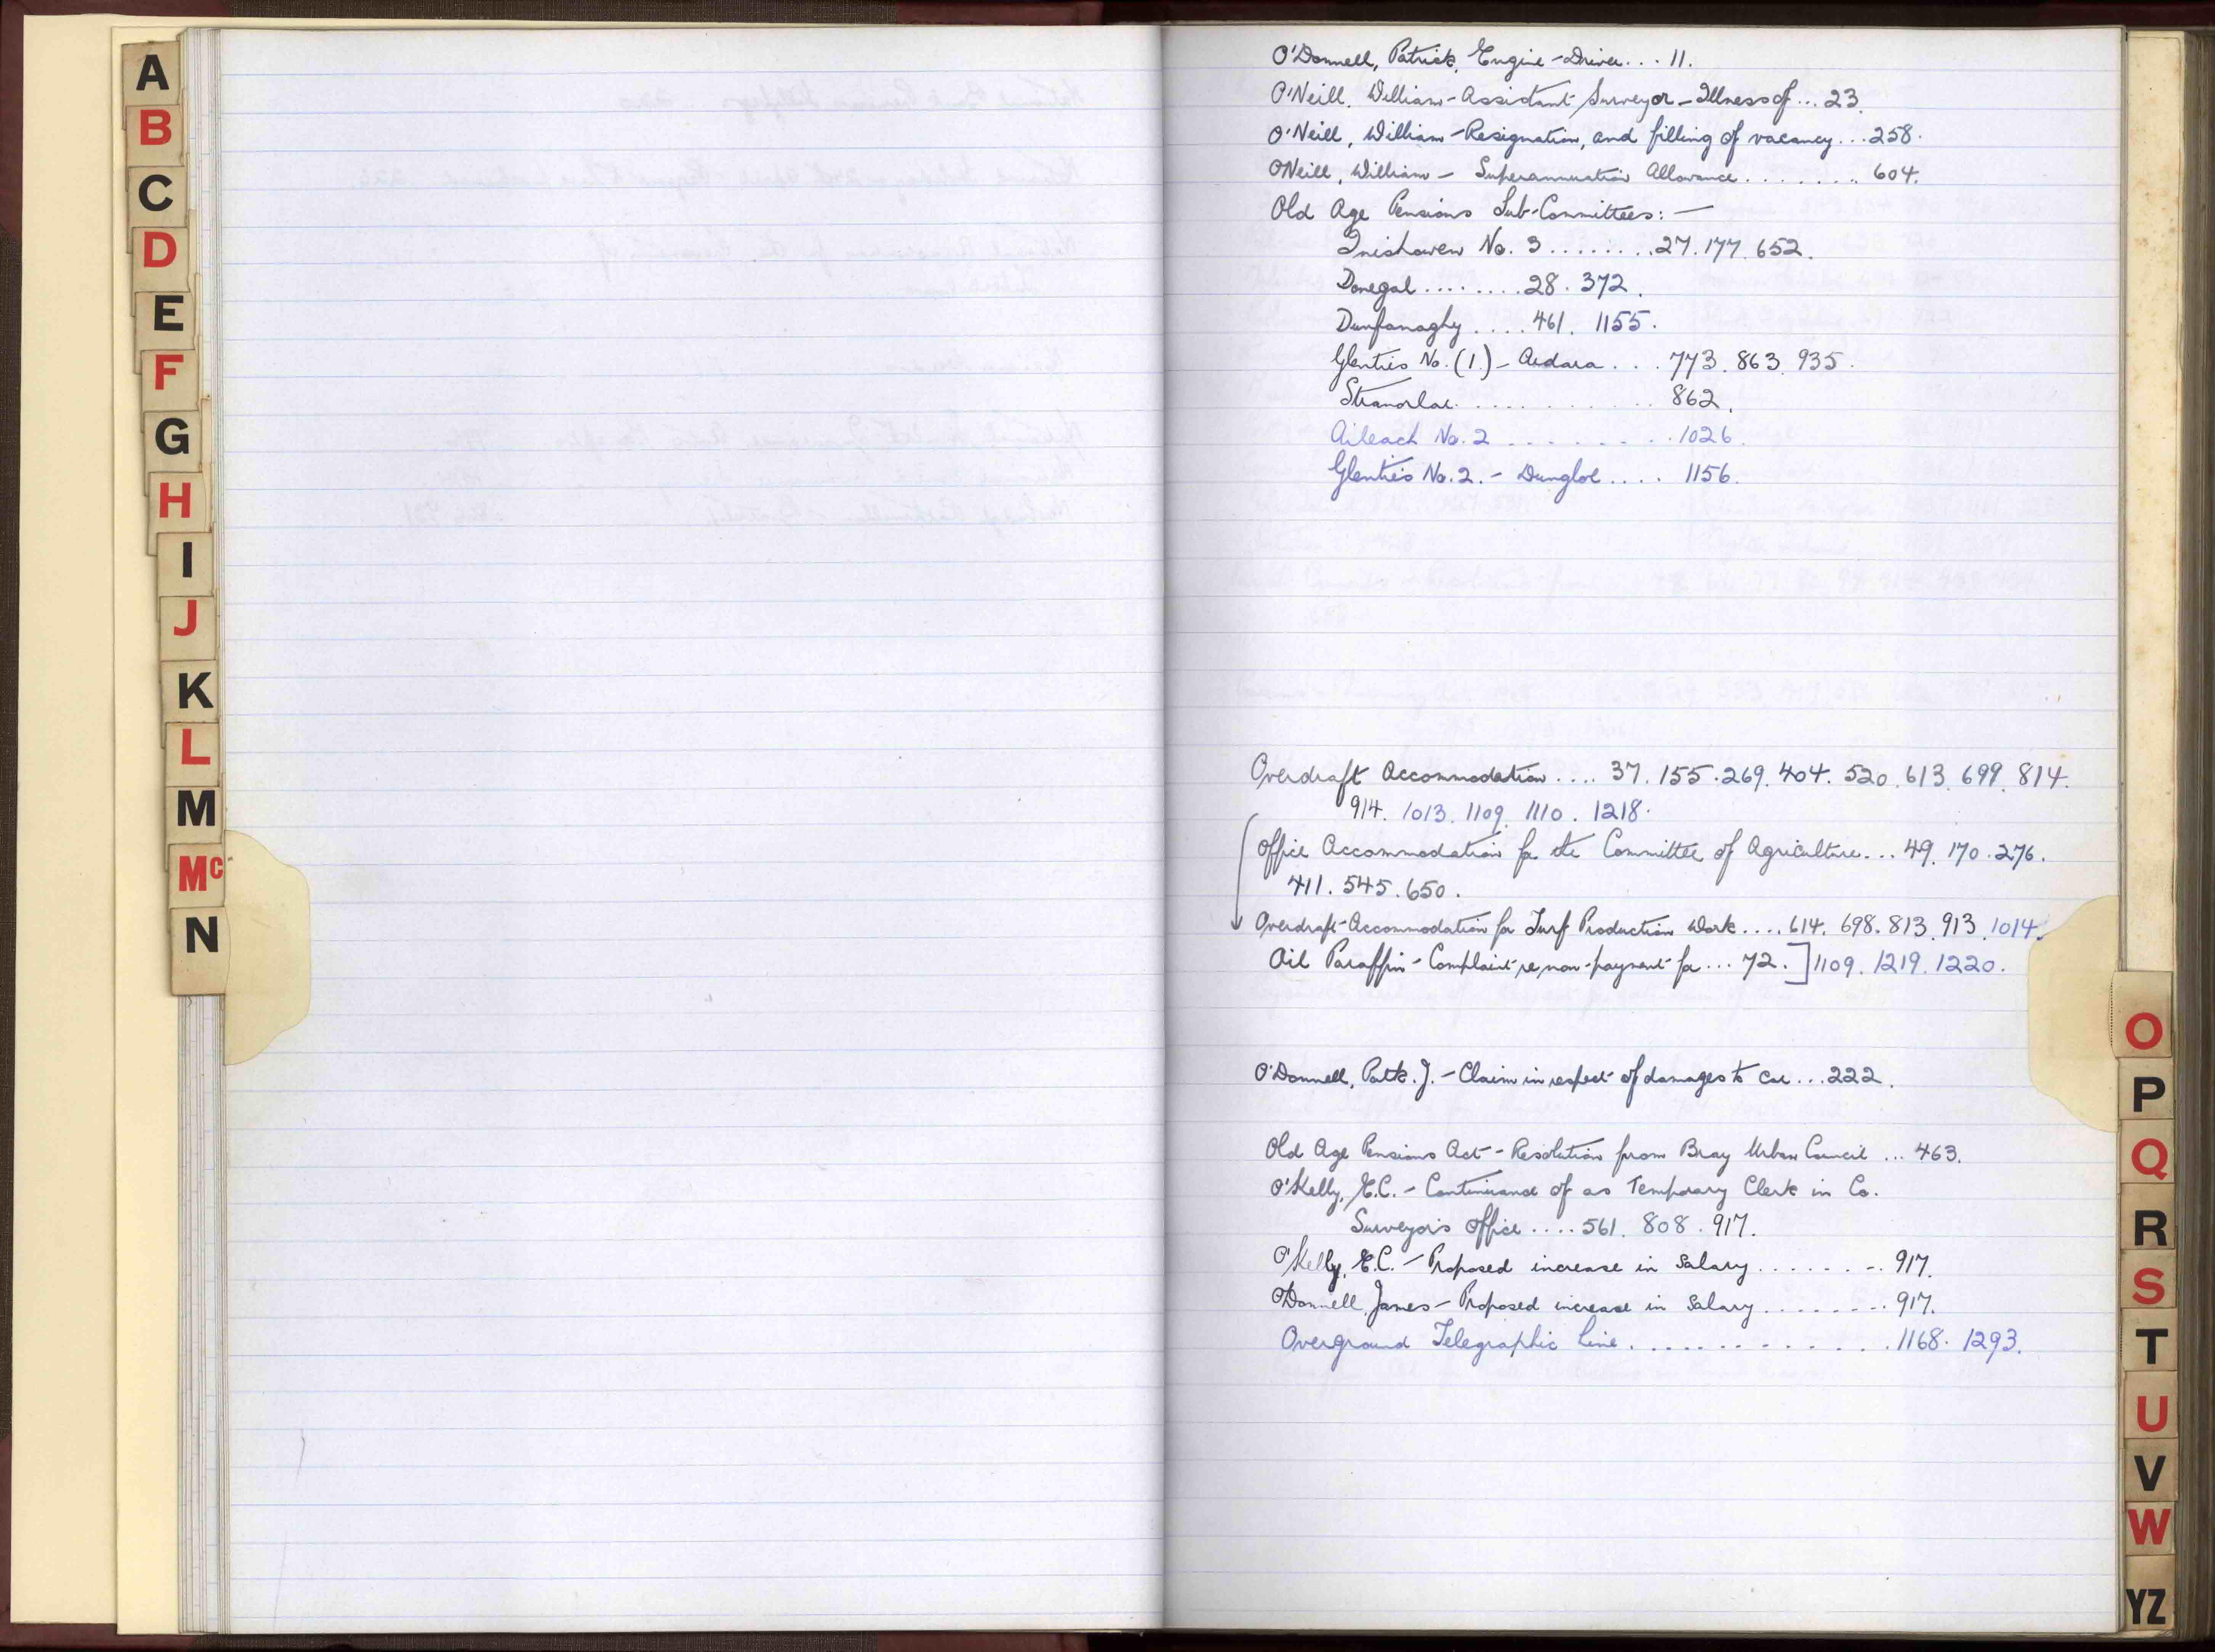 A
B
C
D
E
F
G
H
I
J
K
L
M
Mc
N
O'Donnell, Patrick, Engine-Driver... 11.
O'Neill, William-Assistant Surveyor-Illness of... 23.
O'Neill, William-Resignation, and filling of vacancy... 258.
O'Neill, William - Superannuation Allowance........ 604.
Old Age Pensions Sub-Committees:-
Inishowen No. 3........ 27. 177. 652.
Donegal........ 28. 372.
Dunfanaghy.... 461. 1155.
Glenties No. (1.) - Ardara... 773. 863. 935.
Stranorlar............ 862.
Aileach No. 2........ 1026.
Glenties No. 2. - Dungloe.... 1156.
Overdraft Accommodation.... 37. 155. 269. 404. 520. 613. 699. 814.
914. 1013. 1109. 1110. 1218.
Office Accommodation for the Committee of Agriculture... 49. 170. 276.
411. 545. 650.
Overdraft-Accommodation for Turf Production Work.... 614. 698. 813. 913. 1014.
Oil Paraffin-Complaint re non-payment for... 72. ] 1109. 1219. 1220.
O'Donnell, Patk. J. - Claim in respect of damages to car... 222.
Old Age Pensions Act - Resolution from Bray Urban Council... 463.
O'Kelly, E.C. - Continuance of as Temporary Clerk in Co.
Surveyor's Office.... 561. 808. 917.
O'Kelly, E.C. - Proposed increase in Salary........ 917.
O'Donnell, James - Proposed increase in Salary........ 917.
Overground Telegraphic Line............. 1168. 1293.
O
P
Q
R
S
T
U
V
W
YZ